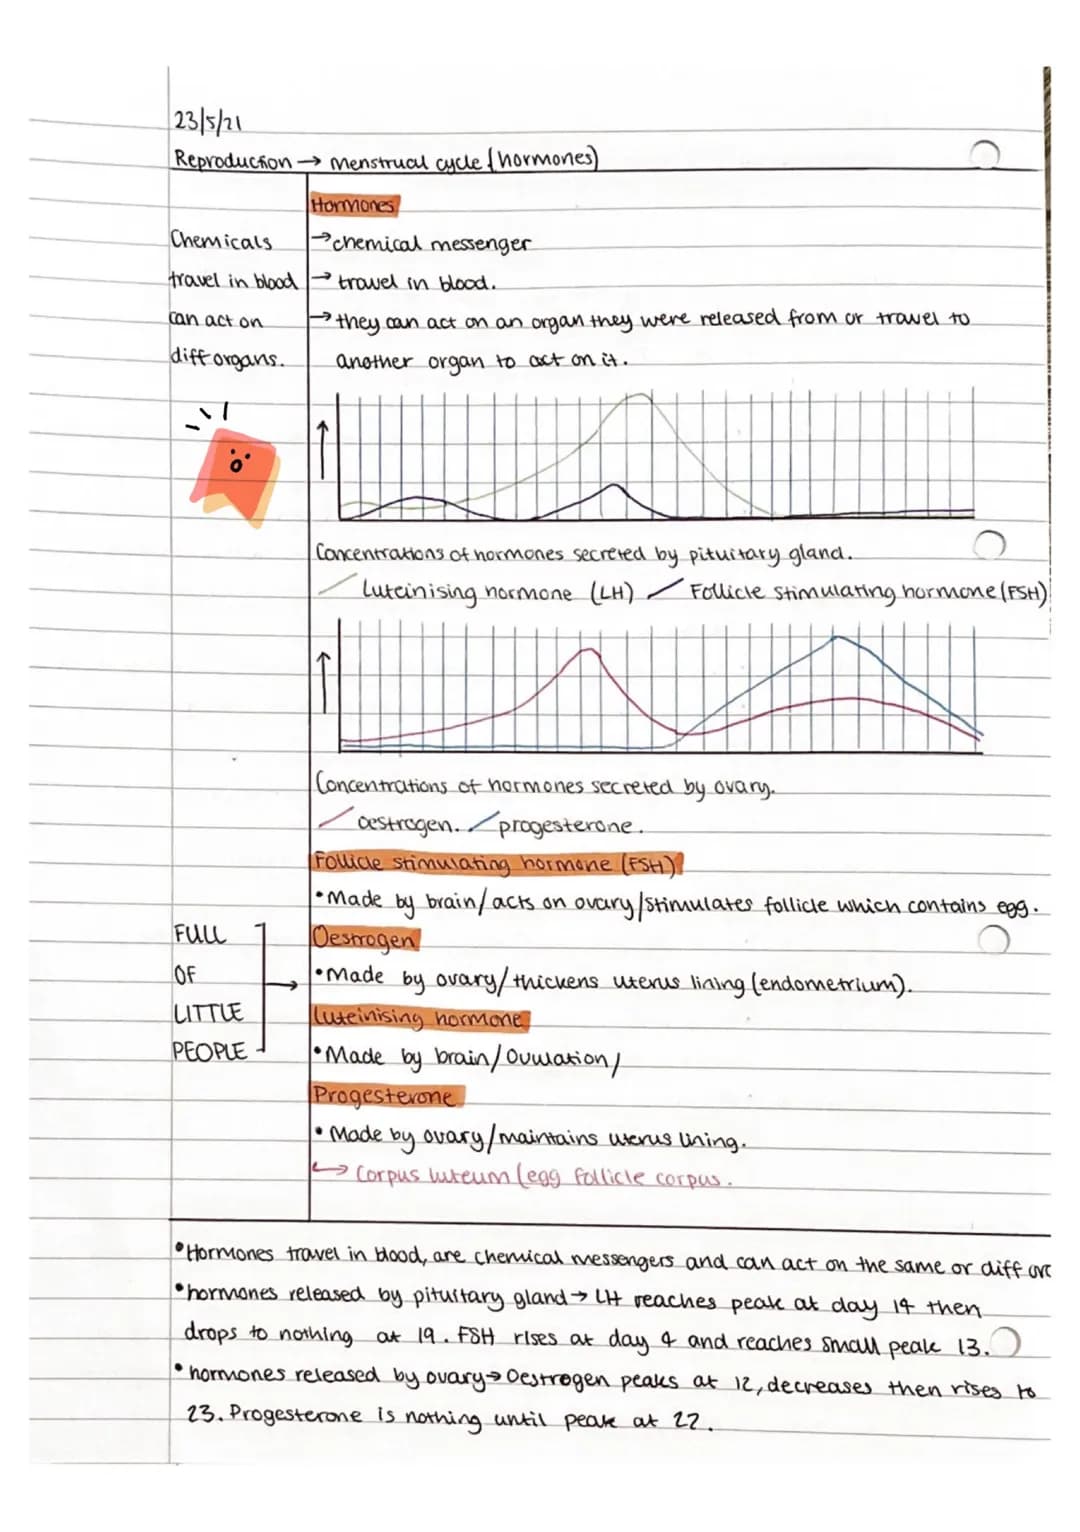 23/5/21
Reproduction → menstrual cycle (hormones)
Hormones
Chemicals
travel in blood
can act on
diff organs.
→ chemical messenger
→ travel in blood.
→ they can act on an organ they were released from or travel to
another organ to act on it.
Concentrations of hormones secreted by pituitary gland.
Luteinising hormone (LH) Follicle stimulating hormone (FSH)
Concentrations of hormones secreted by ovary.
oestrogen. progesterone.
Follicle stimulating hormone (FSH)
•Made by brain/acts on ovary/stimulates follicle which contains egg.
FULL
OF
LITTLE
PEOPLE
→
Oestrogen
•Made by ovary/thickens uterus lining (endometrium).
Luteinising hormone
•Made by brain/Ovulation/
Progesterone
• Made by ovary/maintains uterus lining.
↳ Corpus luteum (egg follicle corpus.
•Hormones travel in blood, are chemical messengers and can act on the same or diff
•hormones released by pituitary gland → LH reaches peak at day 14 then
drops to nothing at 19. FSH rises at day 4 and reaches small peak 13.
•hormones released by ovary → Oestrogen peaks at 12, decreases then rises to
23. Progesterone is nothing until peak at 22.